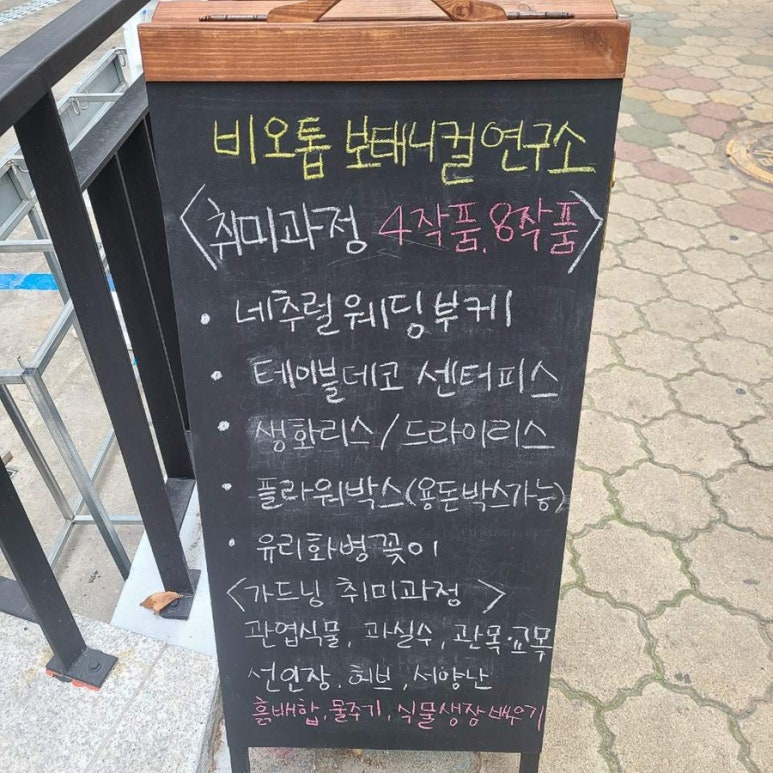 비오톱 보태니컬연구소
<취미과정 4작품, 8작품>
• 네추럴웨딩부케
• 테이블데코 센터피스
• 생화리스/드라이리스
• 플라워박스(용돈박스가능)
• 유리화병꽂이
<가드닝 취미과정 >
관엽식물, 과실수, 관목·교목
선인장, 허브, 서양난
흙배합, 물주기, 식물생장 배우기